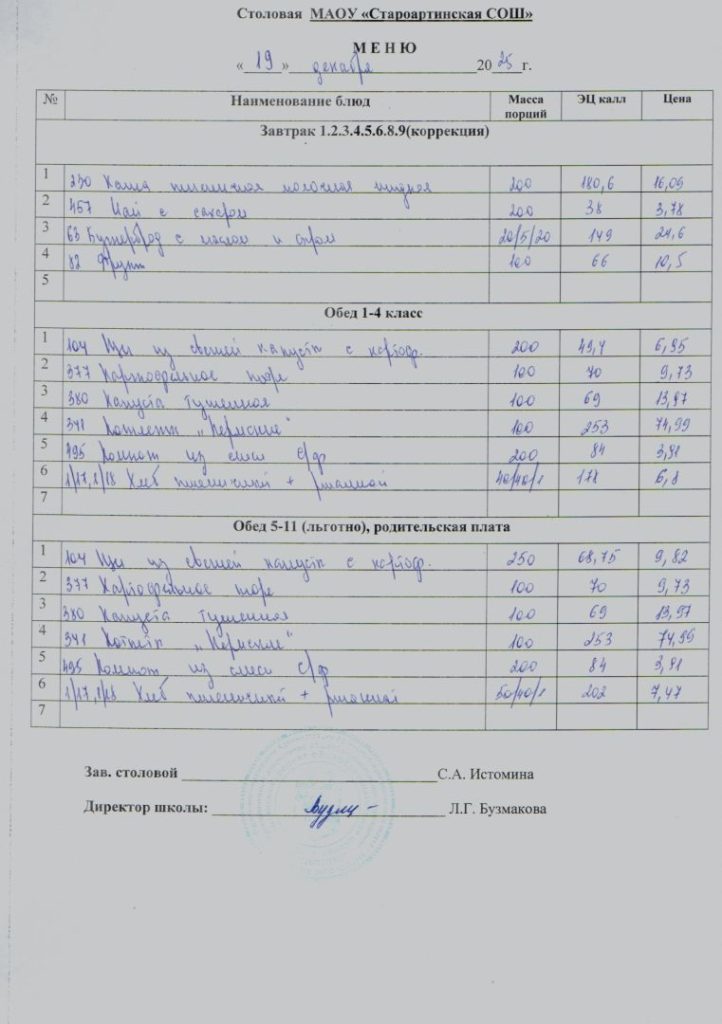 Столовая МАОУ «Староартинская СОШ»
МЕНЮ
« 19 » декабря 2025 г.
№ Наименование блюд Масса порций ЭЦ калл Цена
Завтрак 1.2.3.4.5.6.8.9(коррекция)
1 230 Каша пшеничная молочная жидкая 200 180,6 16,09
2 457 Чай с сахаром 200 38 3,78
3 63 Бутерброд с маслом и сыром 20/5/20 149 24,6
4 82 Фрукт 100 66 10,5
5
Обед 1-4 класс
1 104 Щи из свежей капусты с картоф. 200 49,7 6,95
2 377 Картофельное пюре 100 70 9,73
3 380 Капуста тушенная 100 69 13,97
4 341 Котлеты „Пермские" 100 253 74,99
5 495 Компот из смеси с/ф 200 84 3,91
6 1/17,1/18 Хлеб пшеничный + ржаной 40/40/1 178 6,8
7
Обед 5-11 (льготно), родительская плата
1 104 Щи из свежей капусты с картоф. 250 68,75 9,82
2 377 Картофельное пюре 100 70 9,73
3 380 Капуста тушенная 100 69 13,97
4 341 Котлеты „Пермские" 100 253 74,99
5 495 Компот из смеси с/ф 200 84 3,91
6 1/17,1/18 Хлеб пшеничный + ржаной 50/40/1 202 7,47
7
Зав. столовой С.А. Истомина
Директор школы: Л.Г. Бузмакова